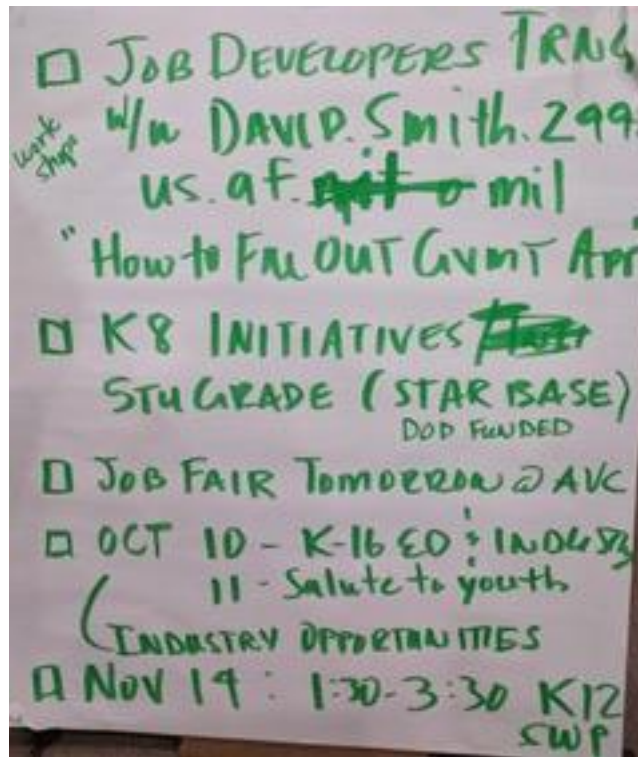 JOB DEVELOPERS TRNG
work shops
w/n DAVID.Smith.299
us.af. mil
"How to FILL OUT GVMT App
K8 INITIATIVES
5TH GRADE (STARBASE)
DOD FUNDED
JOB FAIR TOMORROW @ AVC
OCT 10 - K-16 ED & INDUSTRY
11 - Salute to youth
INDUSTRY OPPORTUNITIES
NOV 14 : 1:30-3:30 K12
SWP